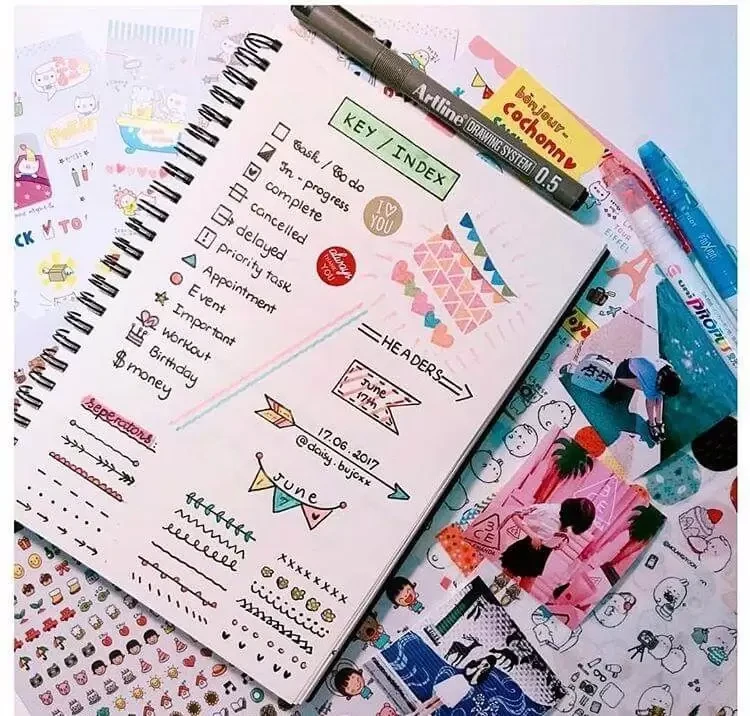 KEY / INDEX
Task / To do
In - progress
complete
cancelled
delayed
priority task
Appointment
Event
Important
workout
Birthday
$ money
I ♡ YOU
always
THANK YOU
HEADERS
June
17th
17.06.2017
@daisy.bujoxx
JUNE
seperators
xxxxxxxx
Artline DRAWING SYSTEM 0.5
bonjour-
cochonn♥
PILOT
uni PROPUS
TOUR
EIFFEL
3CE